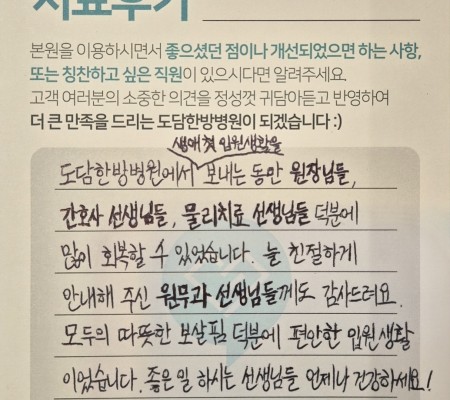 치료후기
본원을 이용하시면서 좋으셨던 점이나 개선되었으면 하는 사항,
또는 칭찬하고 싶은 직원이 있으시다면 알려주세요.
고객 여러분의 소중한 의견을 정성껏 귀담아듣고 반영하여
더 큰 만족을 드리는 도담한방병원이 되겠습니다 :)
생애 첫 입원생활을
도담한방병원에서 보내는 동안 원장님들,
간호사 선생님들, 물리치료 선생님들 덕분에
많이 회복할 수 있었습니다. 늘 친절하게
안내해 주신 원무과 선생님들께도 감사드려요.
모두의 따뜻한 보살핌 덕분에 편안한 입원생활
이었습니다. 좋은 일 하시는 선생님들 언제나 건강하세요!